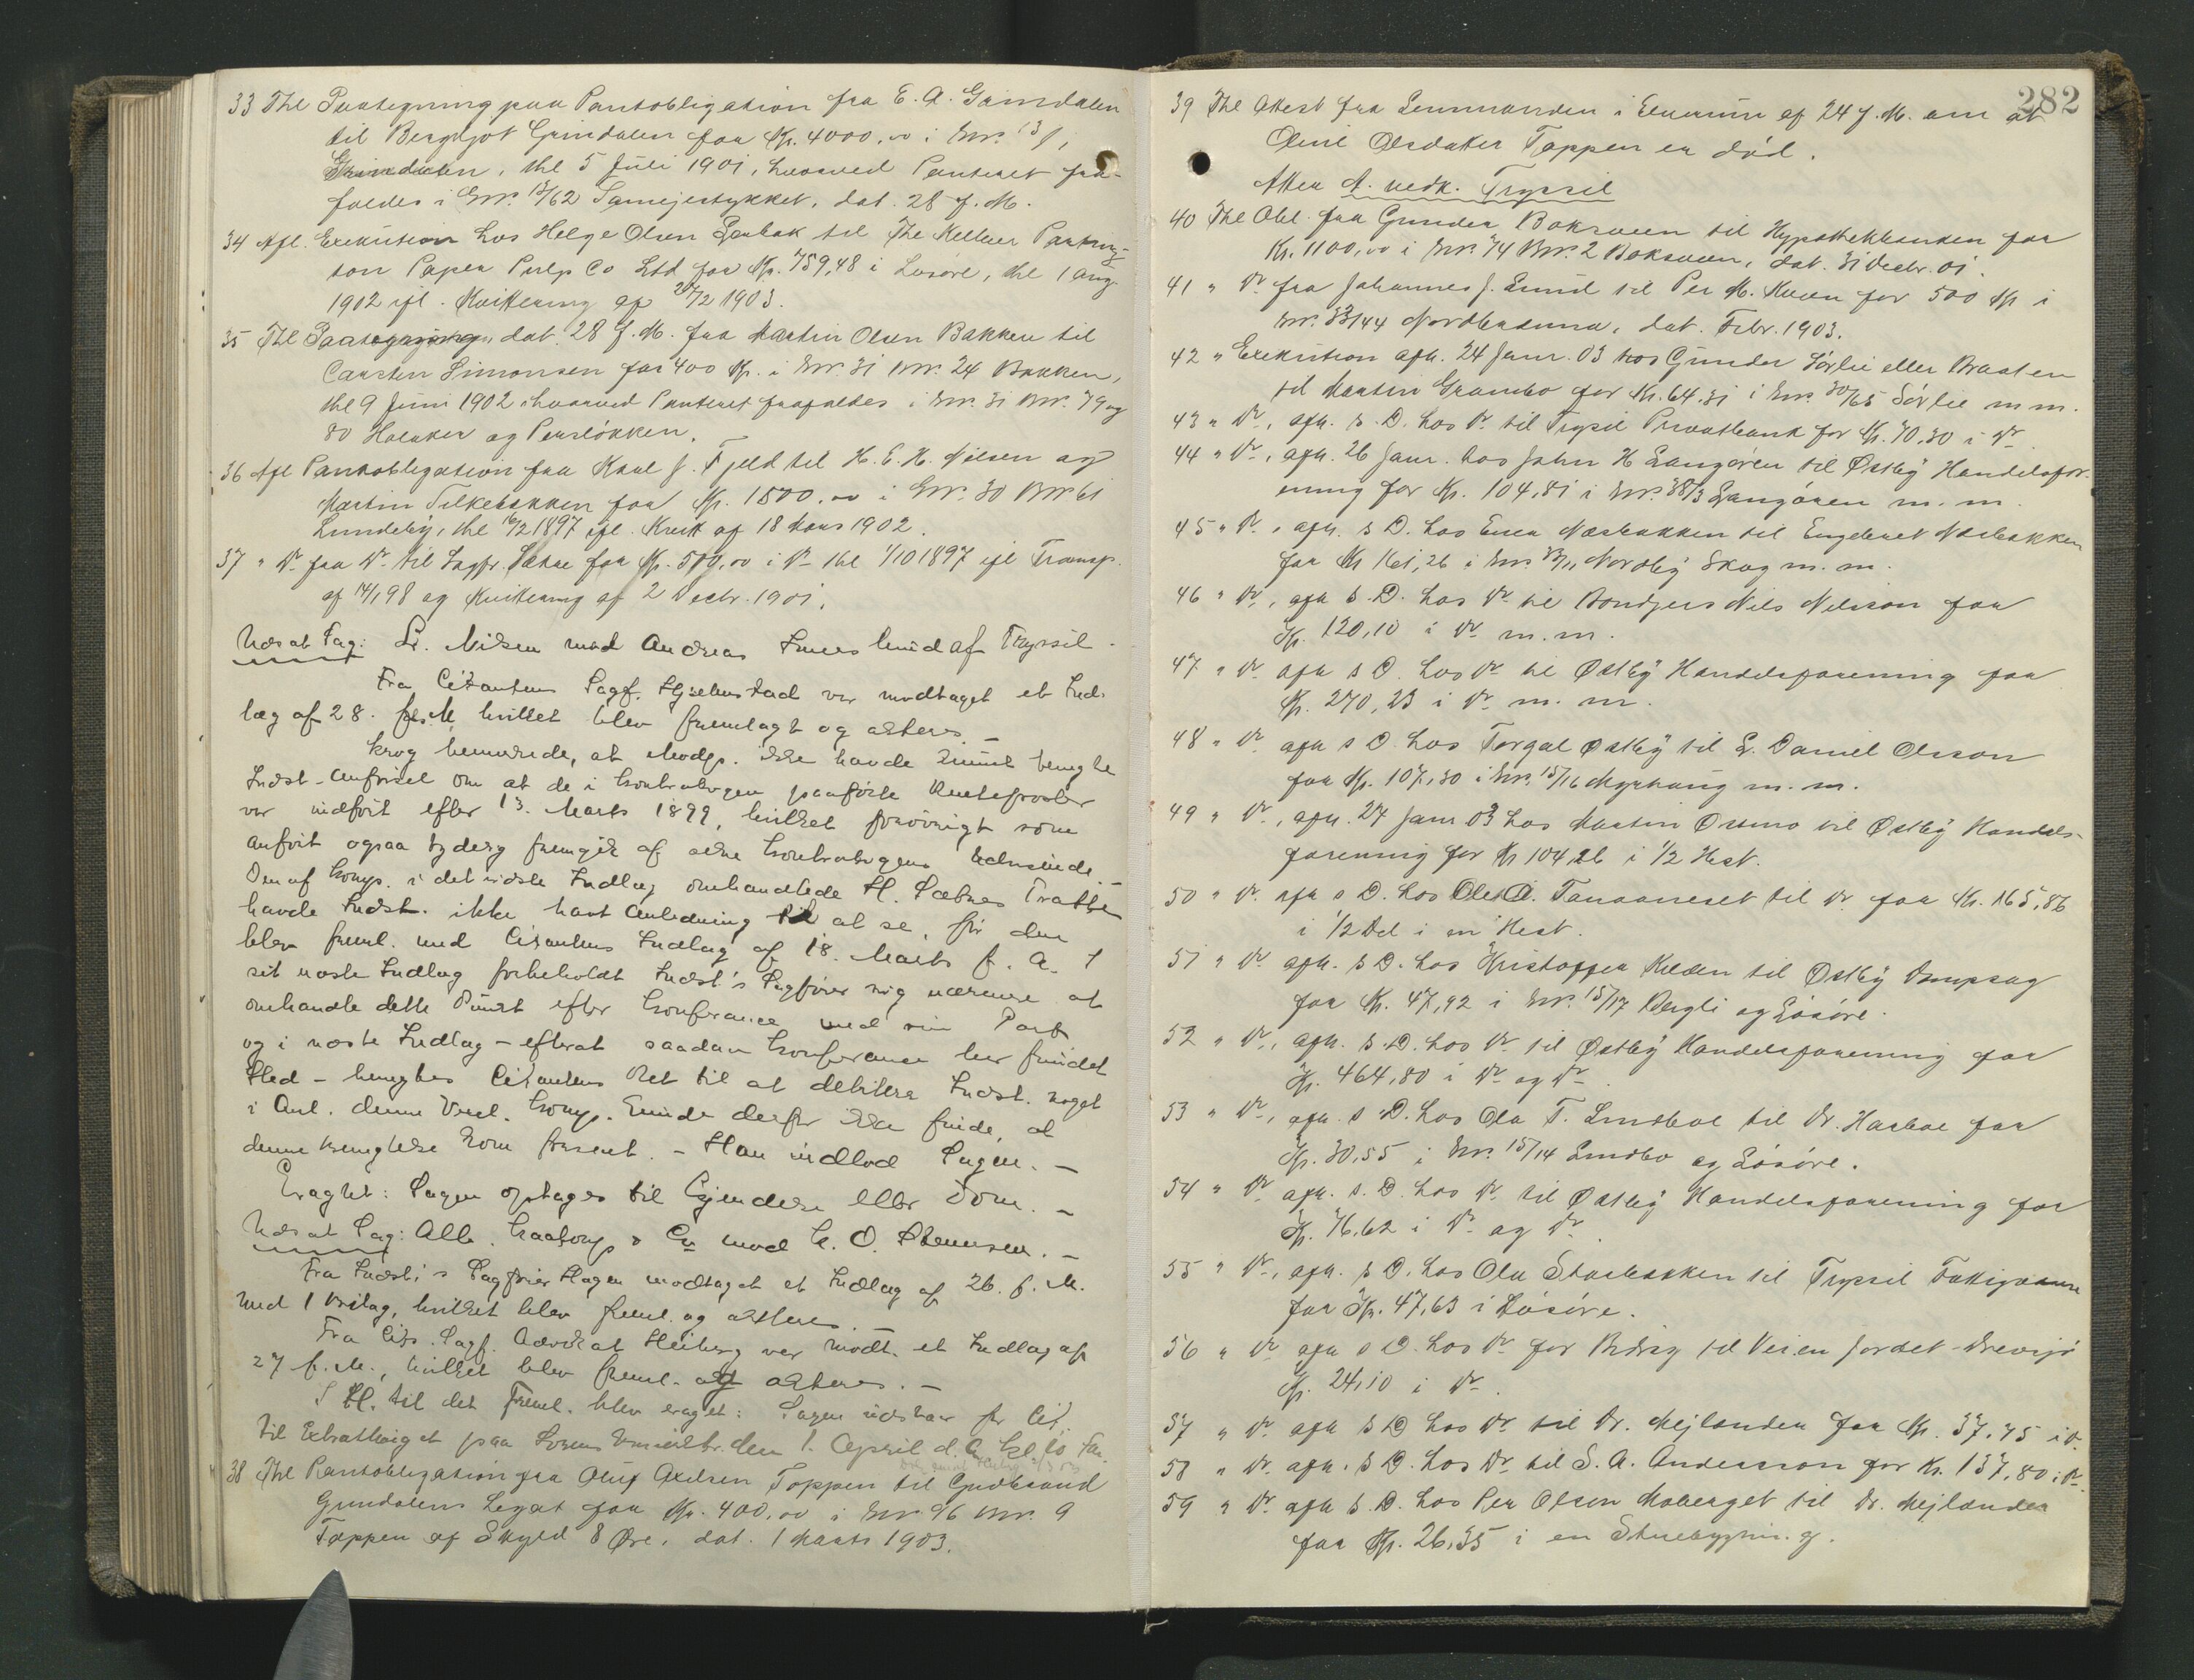 33 Thl Paategning paa Pantobligation fra E. A. Grindalen
til Bergljot Grindalen for Kr. 4000,00 i Gnr. 13/1,
Grindalen, thl 5 Juli 1901, hvorved Panteret fra-
faldes i Gnr. 13/62 Sameiestykket, dat. 28 f. M.
34 Afl. Execution hos Helge Olsen Lerbak til The Kellner Parting-
ton Paper Pulp Co Ltd for Kr. 759,48 i Løsøre, thl 1 Aug.
1902 ifl. Kvittering af 28/2 1903.
35 Thl Paategning, dat. 28 f. M. fra Martin Olsen Bakken til
Carsten Simonsen for 400 Kr. i Gnr. 31 Bnr. 24 Bakken,
thl 9 Juni 1902 hvorved Panteret frafaldes i Gnr. 31 Bnr. 79 og
80 Haluker og Persløkken.
36 Afl Pantobligation fra Karl J. Fjeld til H. E. H. Nilsen og
Martin Silkebækken for Kr. 1500,00 i Gnr. 30 Bnr. 61
Lundeby, thl 16/2 1897 ifl. Kvitt af 18 Mars 1902.
37 " Do fra Do til Sagfr. Sætre for Kr. 500,00 i Do thl 1/10 1897 ifl Transp.
af 14/1 98 og Kvittering af 2 Decbr. 1901.
Udsat Sag: L. Nilsen mod Andreas Lund af Trysil.
Fra Citantens Sagf. Hjelmstad var modtaget et Ind-
læg af 28. f. M, hvilket blev fremlagt og akteres. –
Krog bemærkede, at Modp. ikke havde kunnet benegte
Indst. Anførsel om at de i Kontrabogen paaførte Renteposter
var indført efter 13. Marts 1899, hvilket forøvrigt som
anført ogsaa tydelig fremgik af selve Kontrabogens Udseende. –
Den af Komp. i det sidste Indlæg omhandlede H. Sætres Tratte
havde Indst. ikke havt Anledning til at se, før den
blev freml. med Citantens Indlæg af 18. Marts f. A. I
sit næste Indlæg forbeholdt Indst.'s Sagfører sig nærmere at
omhandle dette Punkt efter Konferance med sin Part
og i næste Indlæg – efterat saadan Konferance har fundet
Sted – benegtes Citantens Ret til at debitere Indst. noget
i Anl. denne Vexel. Komp. kunde derfor ikke finde, at
denne Benegtelse kom forsent. – Han indlod Sagen. –
Eragtet: Sagen optages til Kjendelse eller Dom. –
Udsat Sag: Alb. Kaatorp & Co mod K. O. Stemsen. –
Fra Indst.'s Sagfører Hagen modtaget et Indlæg af 26. f. M.
med 1 Bilag, hvilket blev freml. og akteres. –
Fra Cits. Sagf. Advokat Heiberg var modt. et Indlæg af
27 f. M., hvilket blev freml. og akteres. –
I H. til det Freml. blev eragtet: Sagen udstaar for Cit.
til Extrathinget paa den 1. April d. A. kl. 10 Fm.
38 Thl Pantobligation fra Oluf Axelsen Toppen til Gudbrand
Grundalens Legat for Kr. 400,00 i Gnr. 96 Bnr. 9
Toppen af Skyld 8 Øre, dat. 1 Marts 1903.
282
39 Thl Attest fra Lensmanden i Elverum af 24 f. M. om at
Oline Olsdatter Toppen er død.
Atter A. vedk. Trysil
40 Thl Obl. fra Gunder Baksveen til Hypothekbanken for
Kr. 1100,00 i Gnr. 74 Bnr. 2 Baksveen, dat. 31 Decbr. 01.
41 " Do fra Johannes J. Lund til Per M. Kveen for 500 Kr i
Gnr. 33/44 , dat. Febr. 1903.
42 " Execution afh. 24 Janr. 03 hos Gunder Sørlie eller Braaten
til Martin Grambo for Kr. 64,31 i Gnr. 30/65 Sørlie m m.
43 " Do, afh. s. D. hos Do til Trysil Privatbank for Kr. 70,30 i Do
44 " Do, afh. 26 Janr. hos John H Langøren til Østby Handelsfor-
ening for Kr. 104,81 i Gnr. 38/3 Langøren m. m.
45 " Do, afh. s D. hos Næsbakken til Engebret Næsbakken
for Kr 161,26 i Gnr. Nordby Skog m. m.
46 " Do, afh s. D. hos Do til Nils Nilsson for
Kr. 120,10 i Do m. m.
47 " Do afh s D. hos Do til Østby Handelsforening for
Kr. 270,23 i Do m. m.
48 " Do afh s D. hos Torgal Østby til L. Daniel Olsson
for Kr. 107,30 i Gnr. 15/16 Myrhaug m. m.
49 " Do, afh. 27 Janr 03 hos Martin Osmo til Østby Handels-
forening for Kr 104,26 i 1/2 Hest.
50 " Do afh s D. hos Ole A. Tanaaneset til Do for Kr. 165,86
i 1/2 Del i en Hest.
51 " Do afh. s D. hos Kristoffer Kilden til Østby Dampsag
for Kr. 47,92 i Gnr. 15/17 Bergli og Løsøre.
52 " Do, afh. s. D. hos Do til Østby Handelsforening for
Kr. 464,80 i Do og Do
53 " Do, afh. s. D. hos Ola T. Lindboe til Dr. Harboe for
Kr. 30,55 i Gnr. 15/14 Lindbo og Løsøre.
54 " Do afh. s. D. hos Do til Østby Handelsforening for
Kr. 76,62 i Do og Do.
55 " Do, afh. s D. hos Ola Storbækken til Trysil Fattigvæsen
for Kr. 47,63 i Løsøre.
56 " Do afh s D. hos Do for Bidrag til Veien Jordet-Drevsjø
Kr. 24,10 i Do.
57 " Do afh s D hos Do til Dr. Mejlænder for Kr. 37,75 i Do.
58 " Do. afh. s D. hos Do til S. A. Andersson for Kr. 137,80 i Do.
59 " Do afh s. D. hos Per Olsen Moberget til Dr. Mejlænder
for Kr. 26,35 i en Stuebygning.